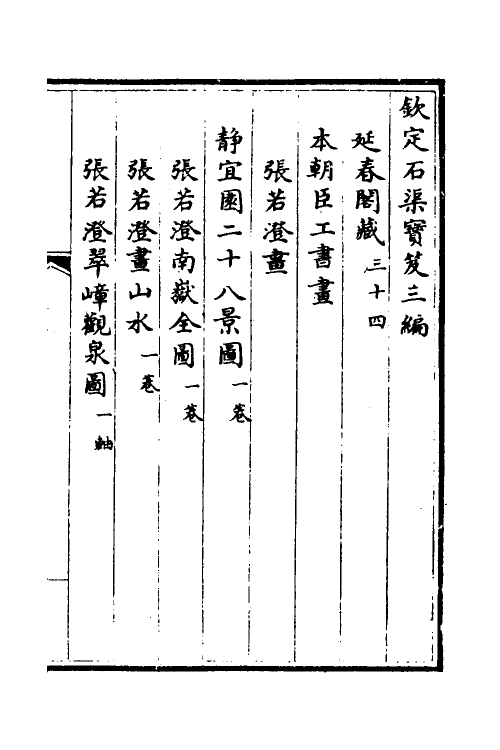 欽定石渠寶笈三編
延春閣藏 三十四
本朝臣工書畫
張若澄畫
靜宜園二十八景圖 一卷
張若澄南嶽全圖 一卷
張若澄畫山水 一卷
張若澄翠嶂觀泉圖 一軸